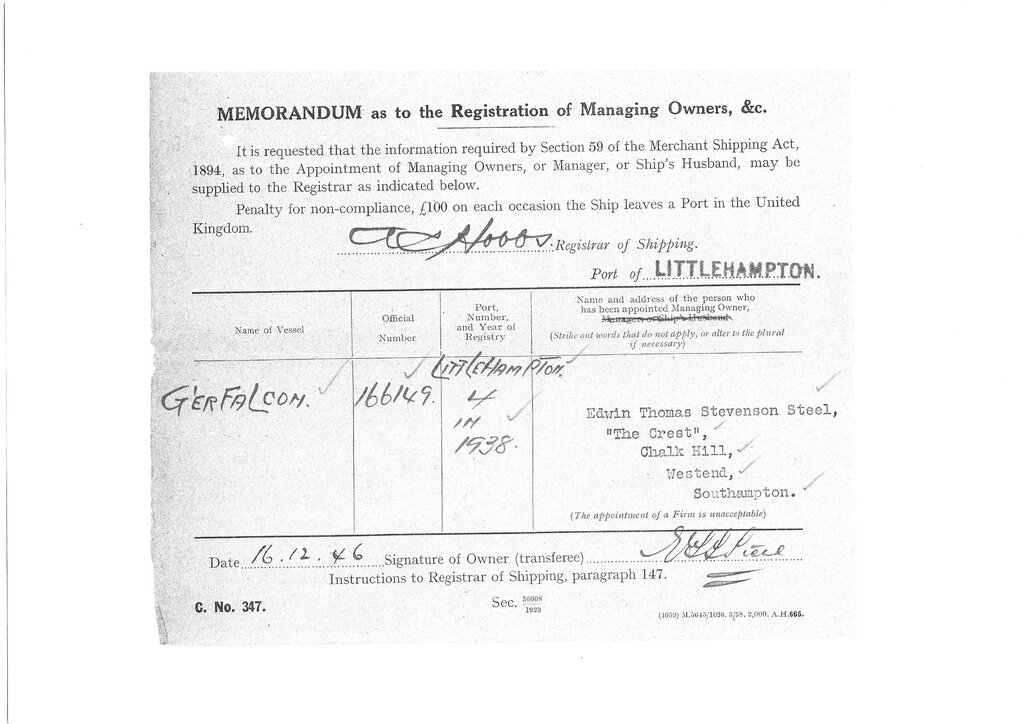 MEMORANDUM as to the Registration of Managing Owners, &c.
It is requested that the information required by Section 59 of the Merchant Shipping Act,
1894, as to the Appointment of Managing Owners, or Manager, or Ship's Husband, may be
supplied to the Registrar as indicated below.
Penalty for non-compliance, £100 on each occasion the Ship leaves a Port in the United
Kingdom.
Hobbs Registrar of Shipping.
Port of LITTLEHAMPTON.
Name of Vessel
Official
Number
Port,
Number,
and Year of
Registry
Name and address of the person who
has been appointed Managing Owner,
Manager, or Ship's Husband.
(Strike out words that do not apply, or alter to the plural
if necessary)
GERFALCON.
166149.
LITTLEHAMPTON.
4
IN
1938.
Edwin Thomas Stevenson Steel,
"The Crest",
Chalk Hill,
Westend,
Southampton.
(The appointment of a Firm is unacceptable)
Date 16.12.46 Signature of Owner (transferee)
Instructions to Registrar of Shipping, paragraph 147.
C. No. 347.
Sec. 36008
1929
(1059) M.5645/1026. 3/38. 2,000. A.H.665.